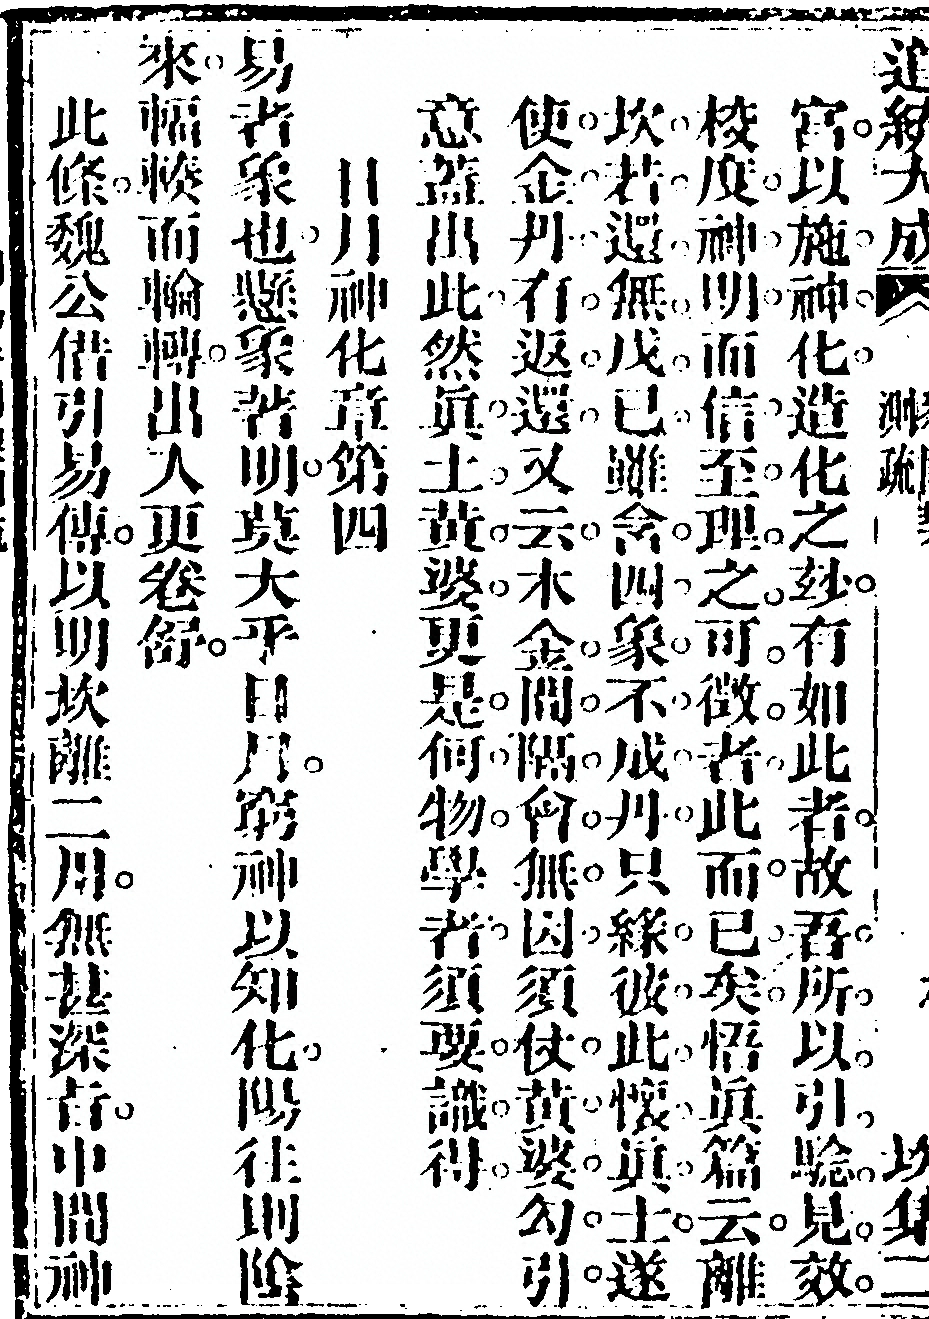 道統大成 測疏
宮以施神化造化之玅有如此者故吾所以引驗見效
校度神明而信至理之可徴者此而已矣悟眞篇云離
坎若還無戊已雖含四象不成丹只緣彼此懷眞土遂
使金丹有返還又云木金間隔會無因須仗黃婆勾引
意蓋出此然眞土黃婆更是何物學者須要識得
日月神化章第四
易者象也懸象著明莫大乎日月窮神以知化陽往則陰
來輻輳而輪轉出入更卷舒
此條魏公借引易傳以明坎離二用無甚深旨中間神